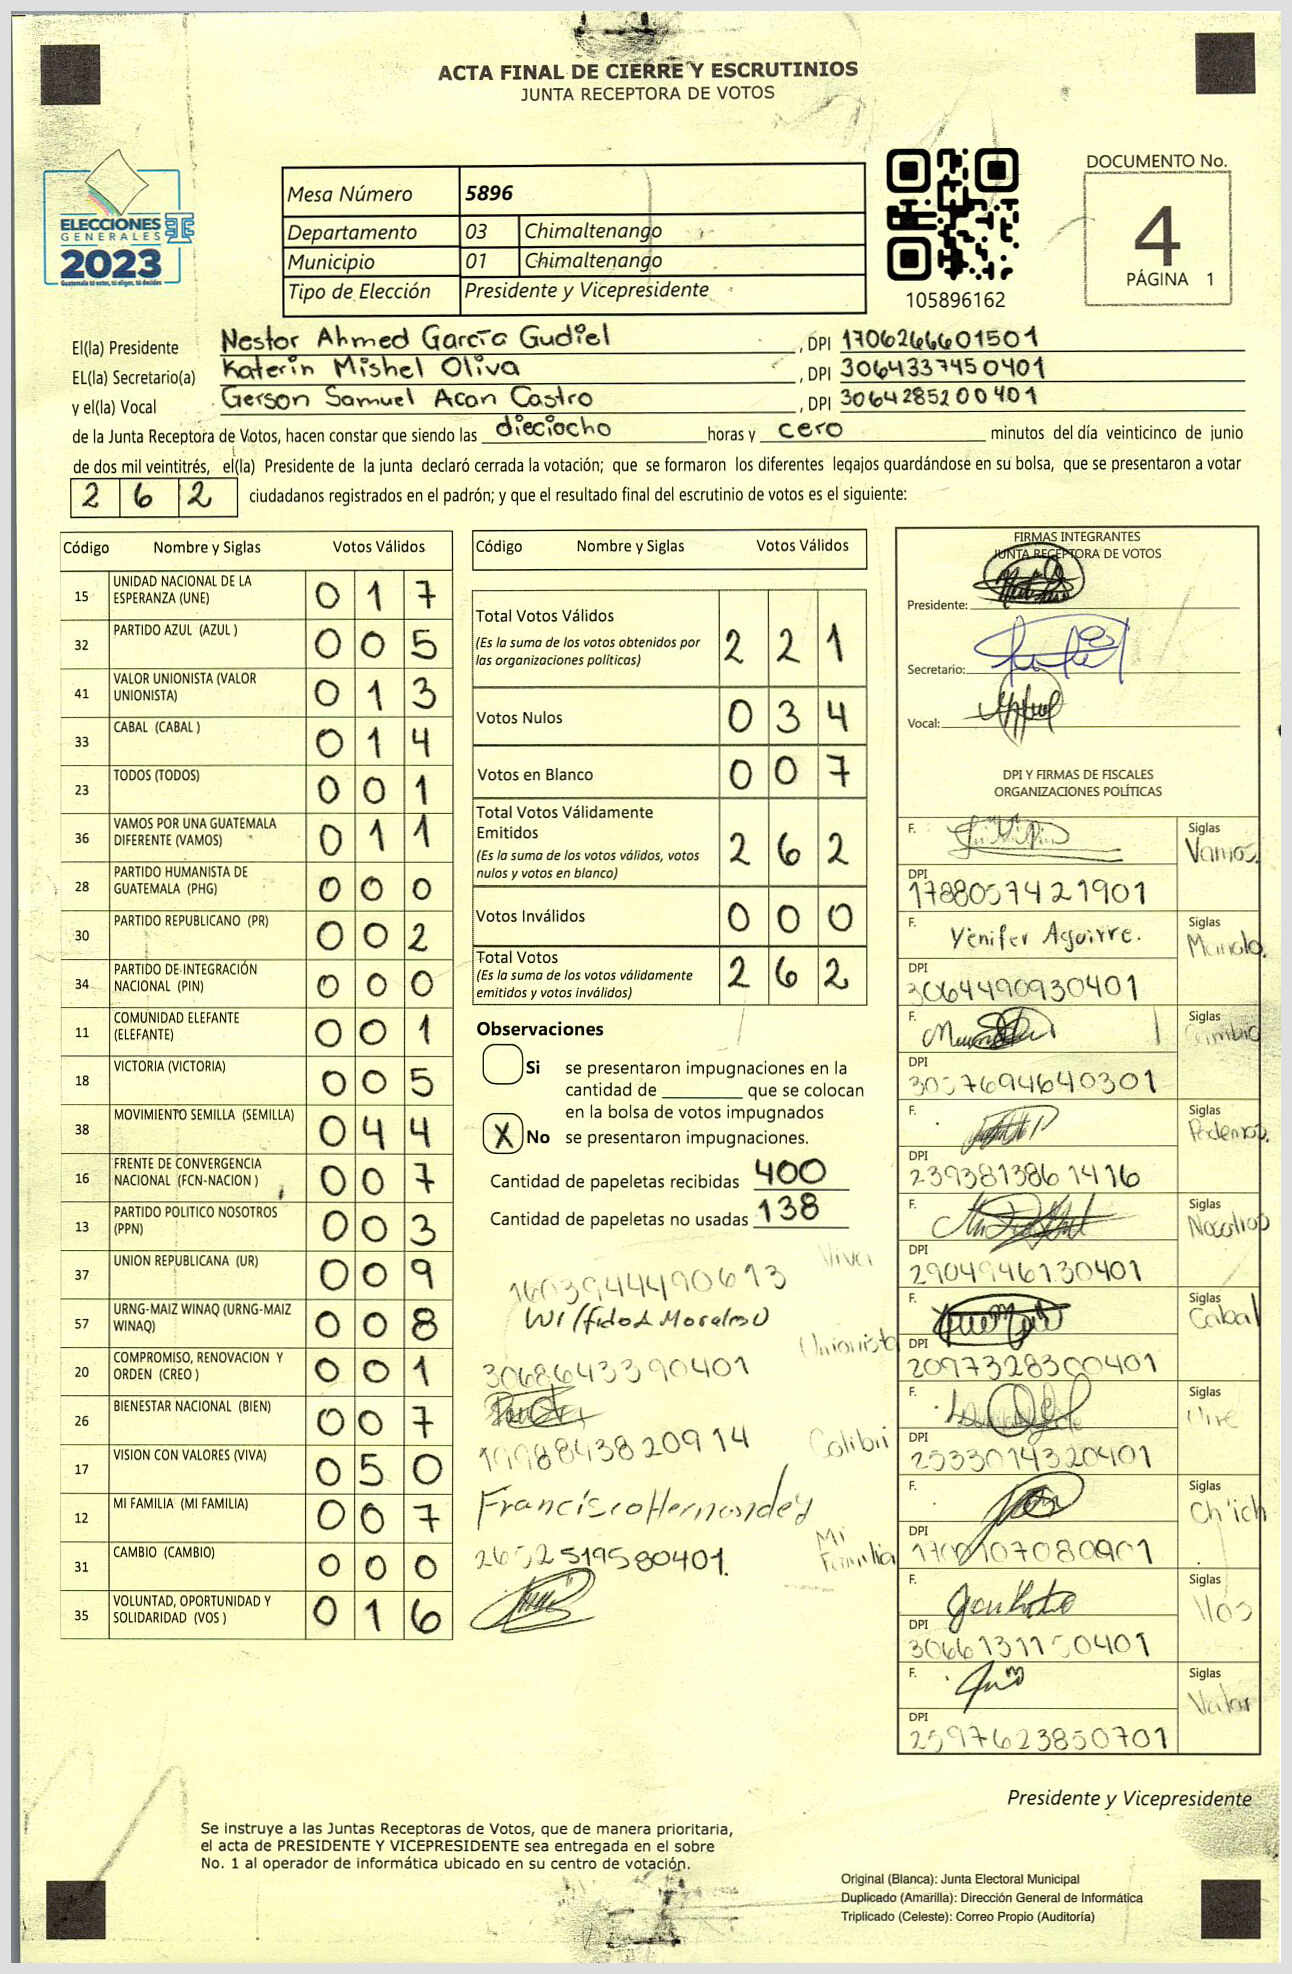 ACTA FINAL DE CIERRE Y ESCRUTINIOS
JUNTA RECEPTORA DE VOTOS
ELECCIONES
GENERALES
2023
Guatemala tú votas, tú eliges, tú decides
Mesa Número 5896
Departamento 03 Chimaltenango
Municipio 01 Chimaltenango
Tipo de Elección Presidente y Vicepresidente
105896162
DOCUMENTO No.
4
PÁGINA 1
El(la) Presidente Nestor Ahmed García Gudiel, DPI 1706266601501
EL(la) Secretario(a) Katerin Mishel Oliva, DPI 3064337450401
y el(la) Vocal Gerson Samuel Acan Castro, DPI 3064285200401
de la Junta Receptora de Votos, hacen constar que siendo las dieciocho horas y cero minutos del día veinticinco de junio
de dos mil veintitrés, el(la) Presidente de la junta declaró cerrada la votación; que se formaron los diferentes legajos guardándose en su bolsa, que se presentaron a votar
2 6 2 ciudadanos registrados en el padrón; y que el resultado final del escrutinio de votos es el siguiente:
Código Nombre y Siglas Votos Válidos
15 UNIDAD NACIONAL DE LA ESPERANZA (UNE) 0 1 7
32 PARTIDO AZUL (AZUL ) 0 0 5
41 VALOR UNIONISTA (VALOR UNIONISTA) 0 1 3
33 CABAL (CABAL ) 0 1 4
23 TODOS (TODOS) 0 0 1
36 VAMOS POR UNA GUATEMALA DIFERENTE (VAMOS) 0 1 1
28 PARTIDO HUMANISTA DE GUATEMALA (PHG) 0 0 0
30 PARTIDO REPUBLICANO (PR) 0 0 2
34 PARTIDO DE INTEGRACIÓN NACIONAL (PIN) 0 0 0
11 COMUNIDAD ELEFANTE (ELEFANTE) 0 0 1
18 VICTORIA (VICTORIA) 0 0 5
38 MOVIMIENTO SEMILLA (SEMILLA) 0 4 4
16 FRENTE DE CONVERGENCIA NACIONAL (FCN-NACION ) 0 0 7
13 PARTIDO POLITICO NOSOTROS (PPN) 0 0 3
37 UNION REPUBLICANA (UR) 0 0 9
57 URNG-MAIZ WINAQ (URNG-MAIZ WINAQ) 0 0 8
20 COMPROMISO, RENOVACION Y ORDEN (CREO ) 0 0 1
26 BIENESTAR NACIONAL (BIEN) 0 0 7
17 VISION CON VALORES (VIVA) 0 5 0
12 MI FAMILIA (MI FAMILIA) 0 0 7
31 CAMBIO (CAMBIO) 0 0 0
35 VOLUNTAD, OPORTUNIDAD Y SOLIDARIDAD (VOS ) 0 1 6
Código Nombre y Siglas Votos Válidos
Total Votos Válidos 2 2 1
(Es la suma de los votos obtenidos por las organizaciones políticas)
Votos Nulos 0 3 4
Votos en Blanco 0 0 7
Total Votos Válidamente Emitidos 2 6 2
(Es la suma de los votos válidos, votos nulos y votos en blanco)
Votos Inválidos 0 0 0
Total Votos 2 6 2
(Es la suma de los votos válidamente emitidos y votos inválidos)
Observaciones
Si se presentaron impugnaciones en la
cantidad de ________ que se colocan
en la bolsa de votos impugnados
X No se presentaron impugnaciones.
Cantidad de papeletas recibidas 400
Cantidad de papeletas no usadas 138
Viva
1603944490613
Unionista
3068643390401
1998843820914
Francisco Hernandez
Mi Familia
2652519580401.
FIRMAS INTEGRANTES
JUNTA RECEPTORA DE VOTOS
Presidente:
Secretario:
Vocal:
DPI Y FIRMAS DE FISCALES
ORGANIZACIONES POLÍTICAS
F. Siglas Vamos.
DPI 1788057421901
F. Yenifer Aguirre. Siglas
DPI 3064490930401
F. Siglas Cambio
DPI 3057694640301
F. Siglas Podemos.
DPI 2393813861416
F. Siglas
DPI 2904946130401
F. Siglas Cabal
DPI 2097328300401
F. Siglas
DPI 2533014320401
F. Siglas
DPI
F. Siglas Vos
DPI 3066131150401
F. Siglas Valor
DPI 2597623850701
Presidente y Vicepresidente
Se instruye a las Juntas Receptoras de Votos, que de manera prioritaria,
el acta de PRESIDENTE Y VICEPRESIDENTE sea entregada en el sobre
No. 1 al operador de informática ubicado en su centro de votación.
Original (Blanca): Junta Electoral Municipal
Duplicado (Amarilla): Dirección General de Informática
Triplicado (Celeste): Correo Propio (Auditoría)